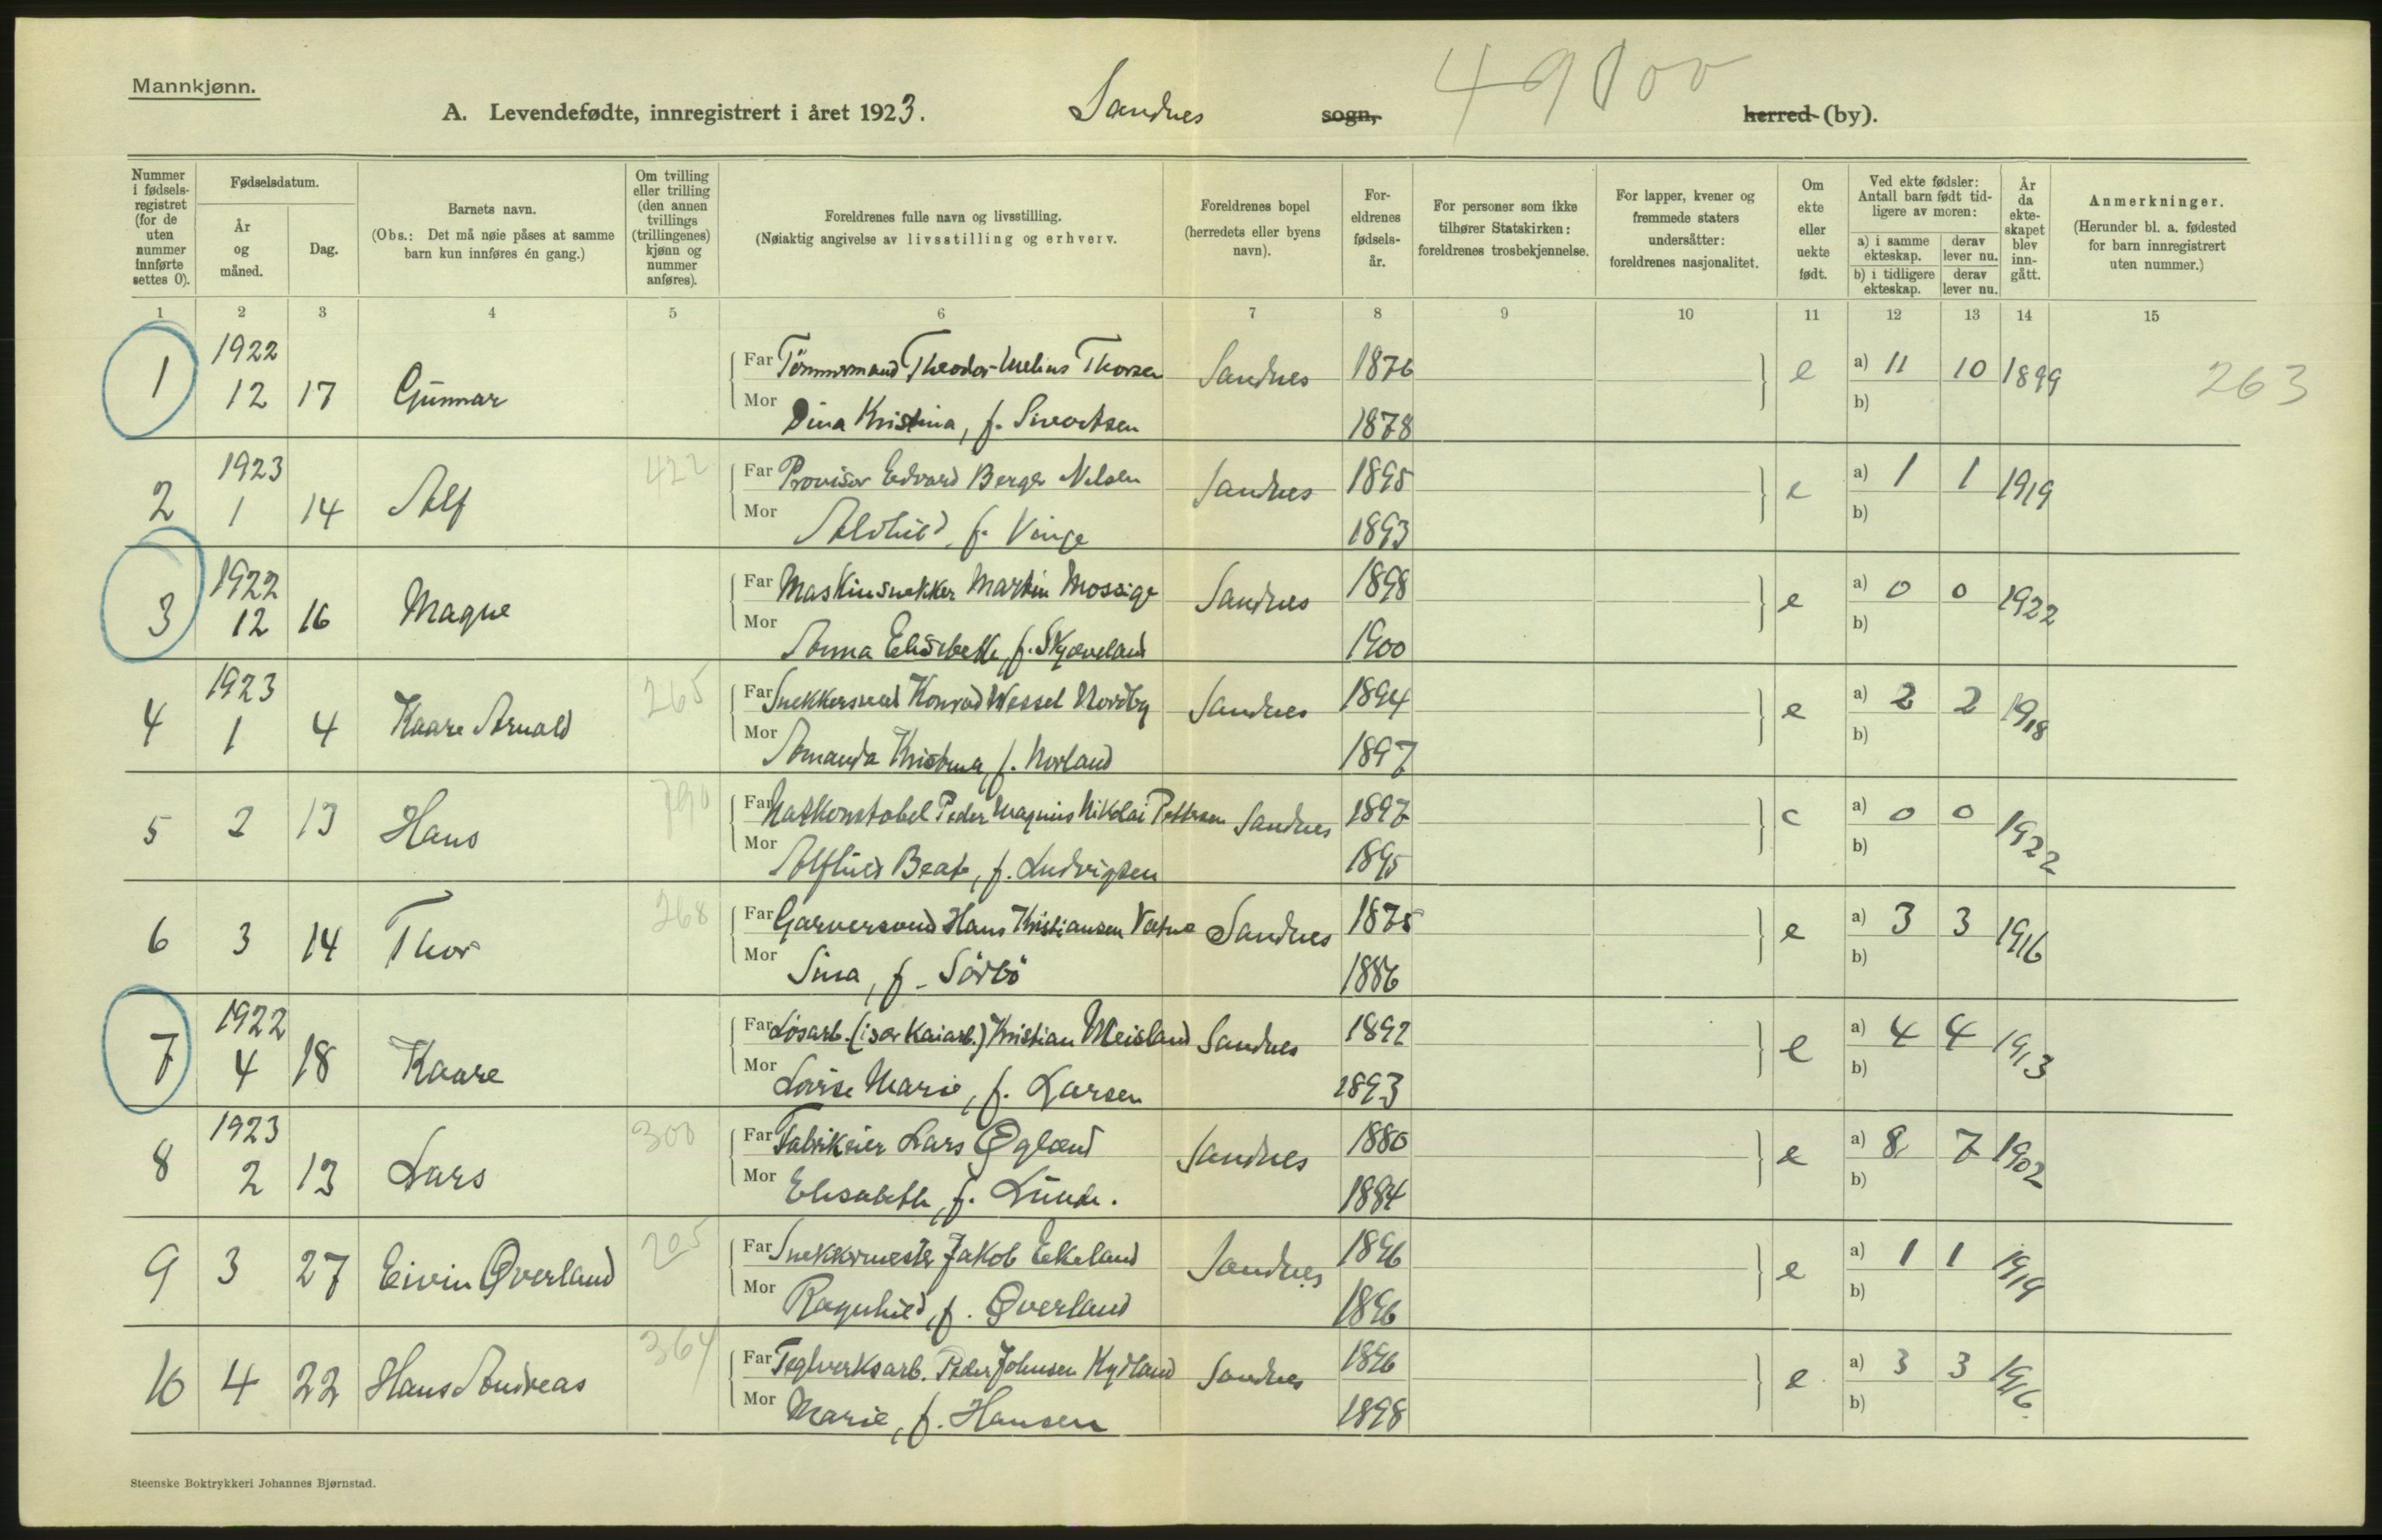 Mannkjønn.
A. Levendefødte, innregistrert i året 1923. Sandnes sogn, herred (by).
49100
Nummer i fødsels-registret (for de uten nummer innførte settes 0).
Fødselsdatum.
År og måned.
Dag.
Barnets navn.
(Obs.: Det må nøie påses at samme barn kun innføres én gang.)
Om tvilling eller trilling (den annen tvillings (trillingenes) kjønn og nummer anføres).
Foreldrenes fulle navn og livsstilling.
(Nøiaktig angivelse av livsstilling og erhverv.
Foreldrenes bopel (herredets eller byens navn).
For-eldrenes fødsels-år.
For personer som ikke tilhører Statskirken: foreldrenes trosbekjennelse.
For lapper, kvener og fremmede staters undersåtter: foreldrenes nasjonalitet.
Om ekte eller uekte født.
Ved ekte fødsler: Antall barn født tid-ligere av moren:
a) i samme ekteskap. derav lever nu.
b) i tidligere ekteskap. derav lever nu.
År da ekte-skapet blev inn-gått.
Anmerkninger.
(Herunder bl. a. fødested for barn innregistrert uten nummer.)
1 2 3 4 5 6 7 8 9 10 11 12 13 14 15
1 1922 12 17 Gunnar Far Tömmermand Theodor Thorsen Sandnes 1876 e a) 11 10 1899 263
Mor Dina Kristina, f. Sivertsen 1878 b)
2 1923 1 14 Alf 422 Far Provisor Edvard Berger Nilsen Sandnes 1895 e a) 1 1 1919
Mor Alvhild, f. Vinge 1893 b)
3 1922 12 16 Magne Far Maskinsnekker Martin Mossige Sandnes 1898 e a) 0 0 1922
Mor Anna Elisabeth, f. Skjæveland 1900 b)
4 1923 1 4 Kaare Arnold 265 Far Snekkersvend Konrad Wessel Nordby Sandnes 1894 e a) 2 2 1918
Mor Amanda Kristina, f. Norland 1897 b)
5 2 13 Hans 790 Far Natkonstabel Peder Magnus Nikolai Pettersen Sandnes 1897 e a) 0 0 1922
Mor Alfhild Beate, f. Ludvigsen 1895 b)
6 3 14 Thor 268 Far Garversvend Hans Kristiansen Vatne Sandnes 1875 e a) 3 3 1916
Mor Sina, f. Sörbö 1886 b)
7 1922 4 18 Kaare Far Løsarb. (især Kaiarb.) Kristian Meisland Sandnes 1892 e a) 4 4 1913
Mor Lovise Marie, f. Larsen 1893 b)
8 1923 2 13 Lars 300 Far Fabrikeier Lars Øglænd Sandnes 1880 e a) 8 7 1902
Mor Elisabeth, f. Lunde. 1884 b)
9 3 27 Eivin Øverland 205 Far Snekkermester Jakob Eikeland Sandnes 1896 e a) 1 1 1919
Mor Ragnhild, f. Øverland 1896 b)
10 4 22 Hans Andreas 364 Far Teglverksarb. Peder Johnsen Kydland Sandnes 1896 e a) 3 3 1916
Mor Marie, f. Hansen 1898 b)
Steenske Boktrykkeri Johannes Bjørnstad.